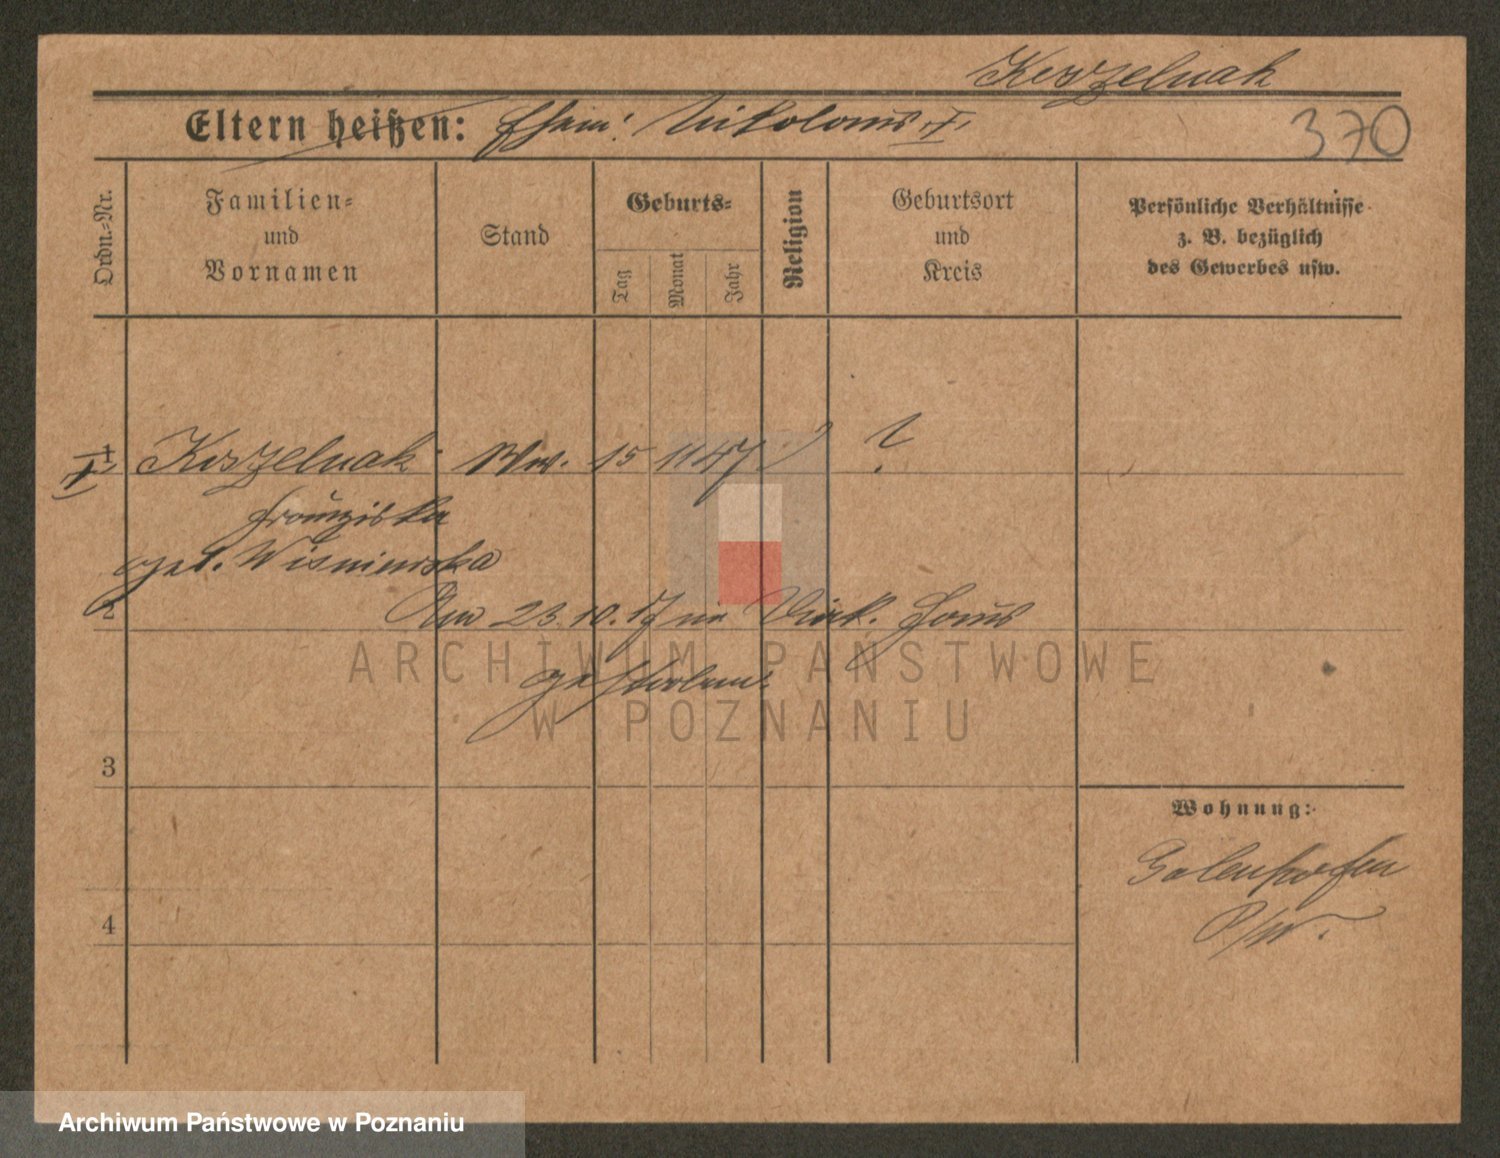 Koszelnak
Eltern heißen: Ehem: Nikolaus †
370
Ordn.-Nr.
Familien- und Vornamen
Stand
Geburts-
Tag
Monat
Jahr
Religion
Geburtsort und Kreis
Persönliche Verhältnisse z. B. bezüglich des Gewerbes usw.
1 Koszelnak Ww. 15 11 47 ?
Franziska
geb. Wisniewska
2 Am 23.10.17 im Haus
gestorben.
3
Wohnung:
4
ARCHIWUM PAŃSTWOWE
W POZNANIU
Archiwum Państwowe w Poznaniu